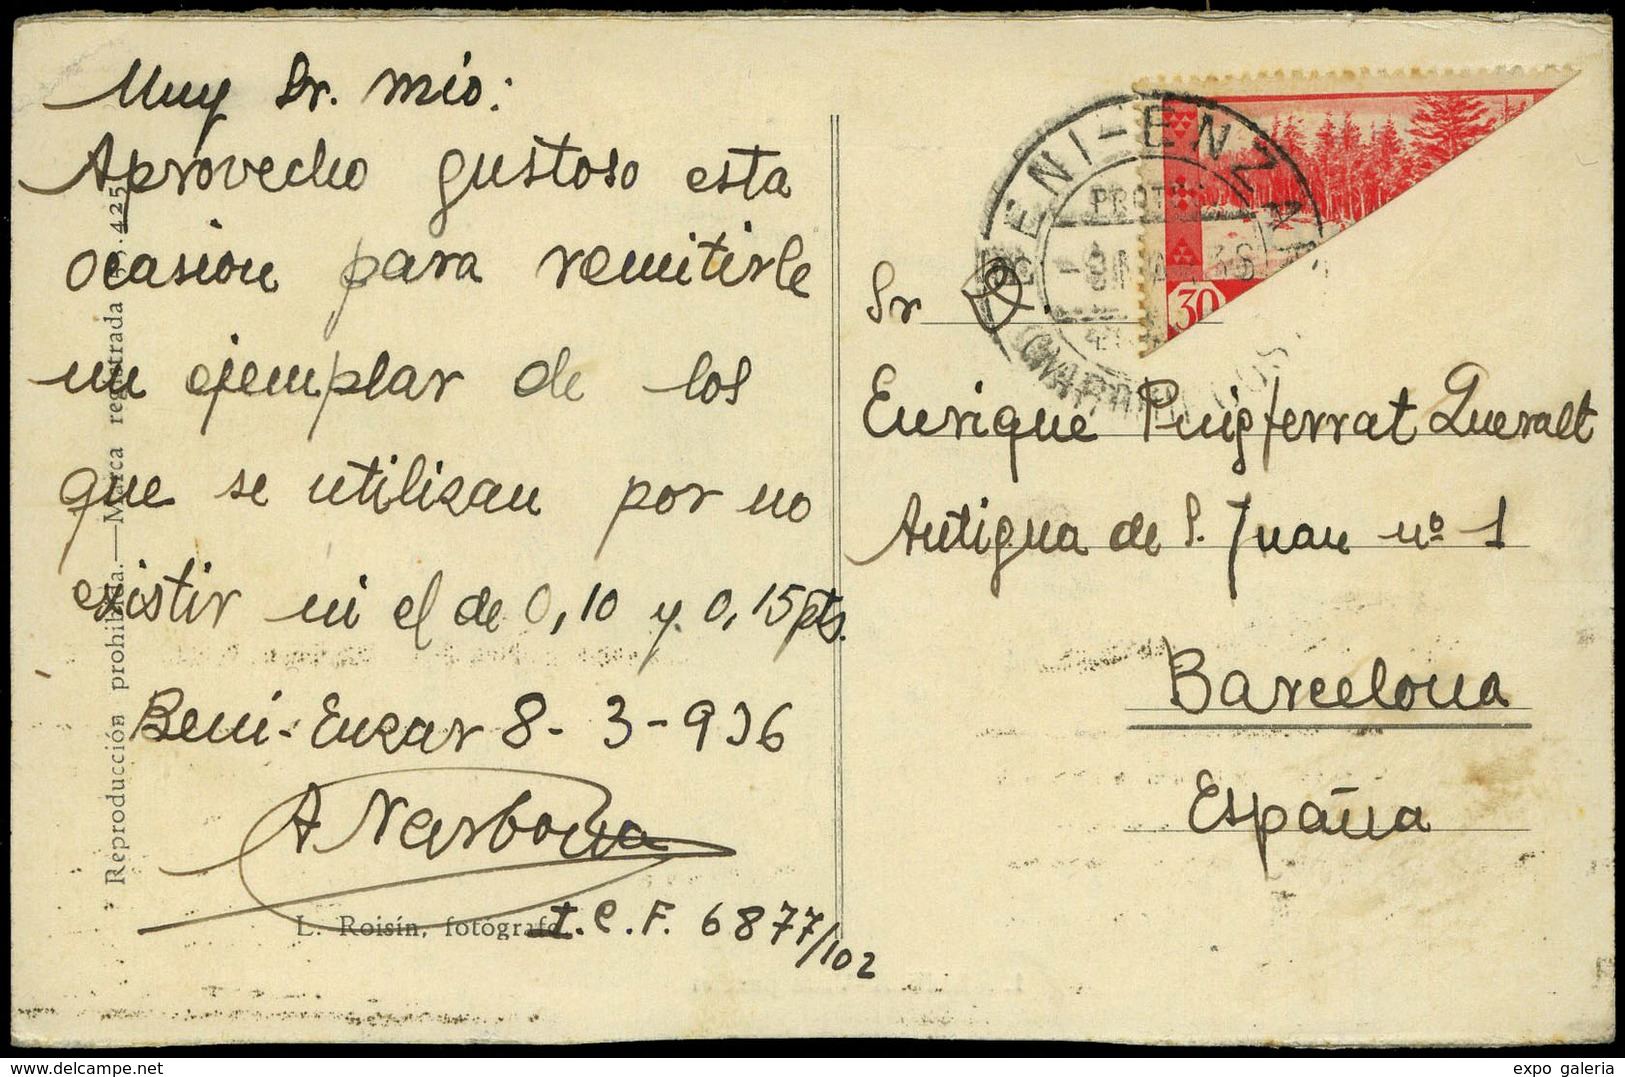 Muy Sr. mio:
Aprovecho gustoso esta
ocasion para remitirle
un ejemplar de los
que se utilizan por no
existir ni el de 0,10 y 0,15 pts.
Beni-Enzar 8-3-936
A Narbona
t.C.F. 6877/102
L. Roisín, fotógrafo
Reproducción prohibida.—Marca registrada 425
BENI-ENZA
30
Sr D.
Enrique Puigferrat Queralt
Antigua de S. Juan nº 1
Barcelona
España
expo galeria